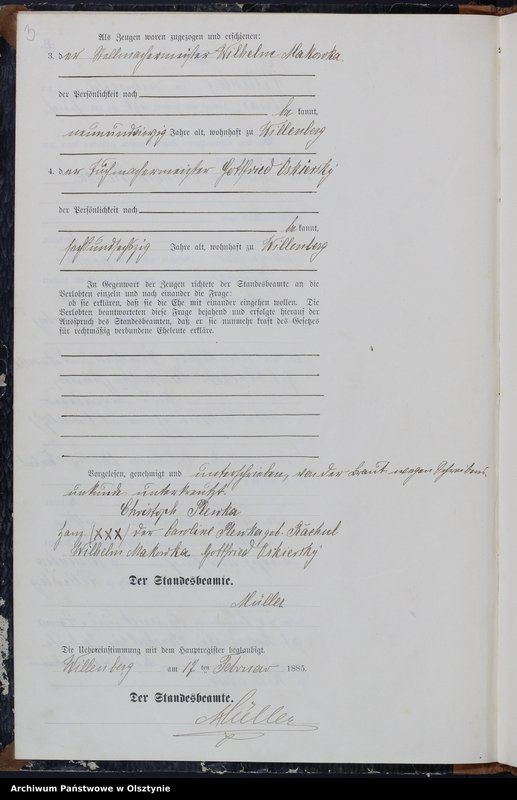 Als Zeugen waren zugezogen und erschienen:
3. der Stellmachermeister Wilhelm Makowka
der Persönlichkeit nach
bekannt,
neunundvierzig Jahre alt, wohnhaft zu Willenberg
4. der Tuchmachermeister Gottfried Oskiersky
der Persönlichkeit nach
bekannt,
sechsundsechszig Jahre alt, wohnhaft zu Willenberg
In Gegenwart der Zeugen richtete der Standesbeamte an die
Verlobten einzeln und nach einander die Frage:
ob sie erklären, daß sie die Ehe mit einander eingehen wollen. Die
Verlobten beantworteten diese Frage bejahend und erfolgte hierauf der
Ausspruch des Standesbeamten, daß er sie nunmehr kraft des Gesetzes
für rechtmäßig verbundene Eheleute erkläre.
Vorgelesen, genehmigt und unterschrieben, von der Braut wegen Schreibens-
unkunde unterkreuzt.
Christoph Plewka
Hanz. (XXX) der Caroline Plewka geb.
Wilhelm Makowka Gottfried Oskiersky
Der Standesbeamte.
Müller
Die Uebereinstimmung mit dem Hauptregister beglaubigt.
Willenberg am 17ten Februar 1885.
Der Standesbeamte.
Müller
Archiwum Państwowe w Olsztynie